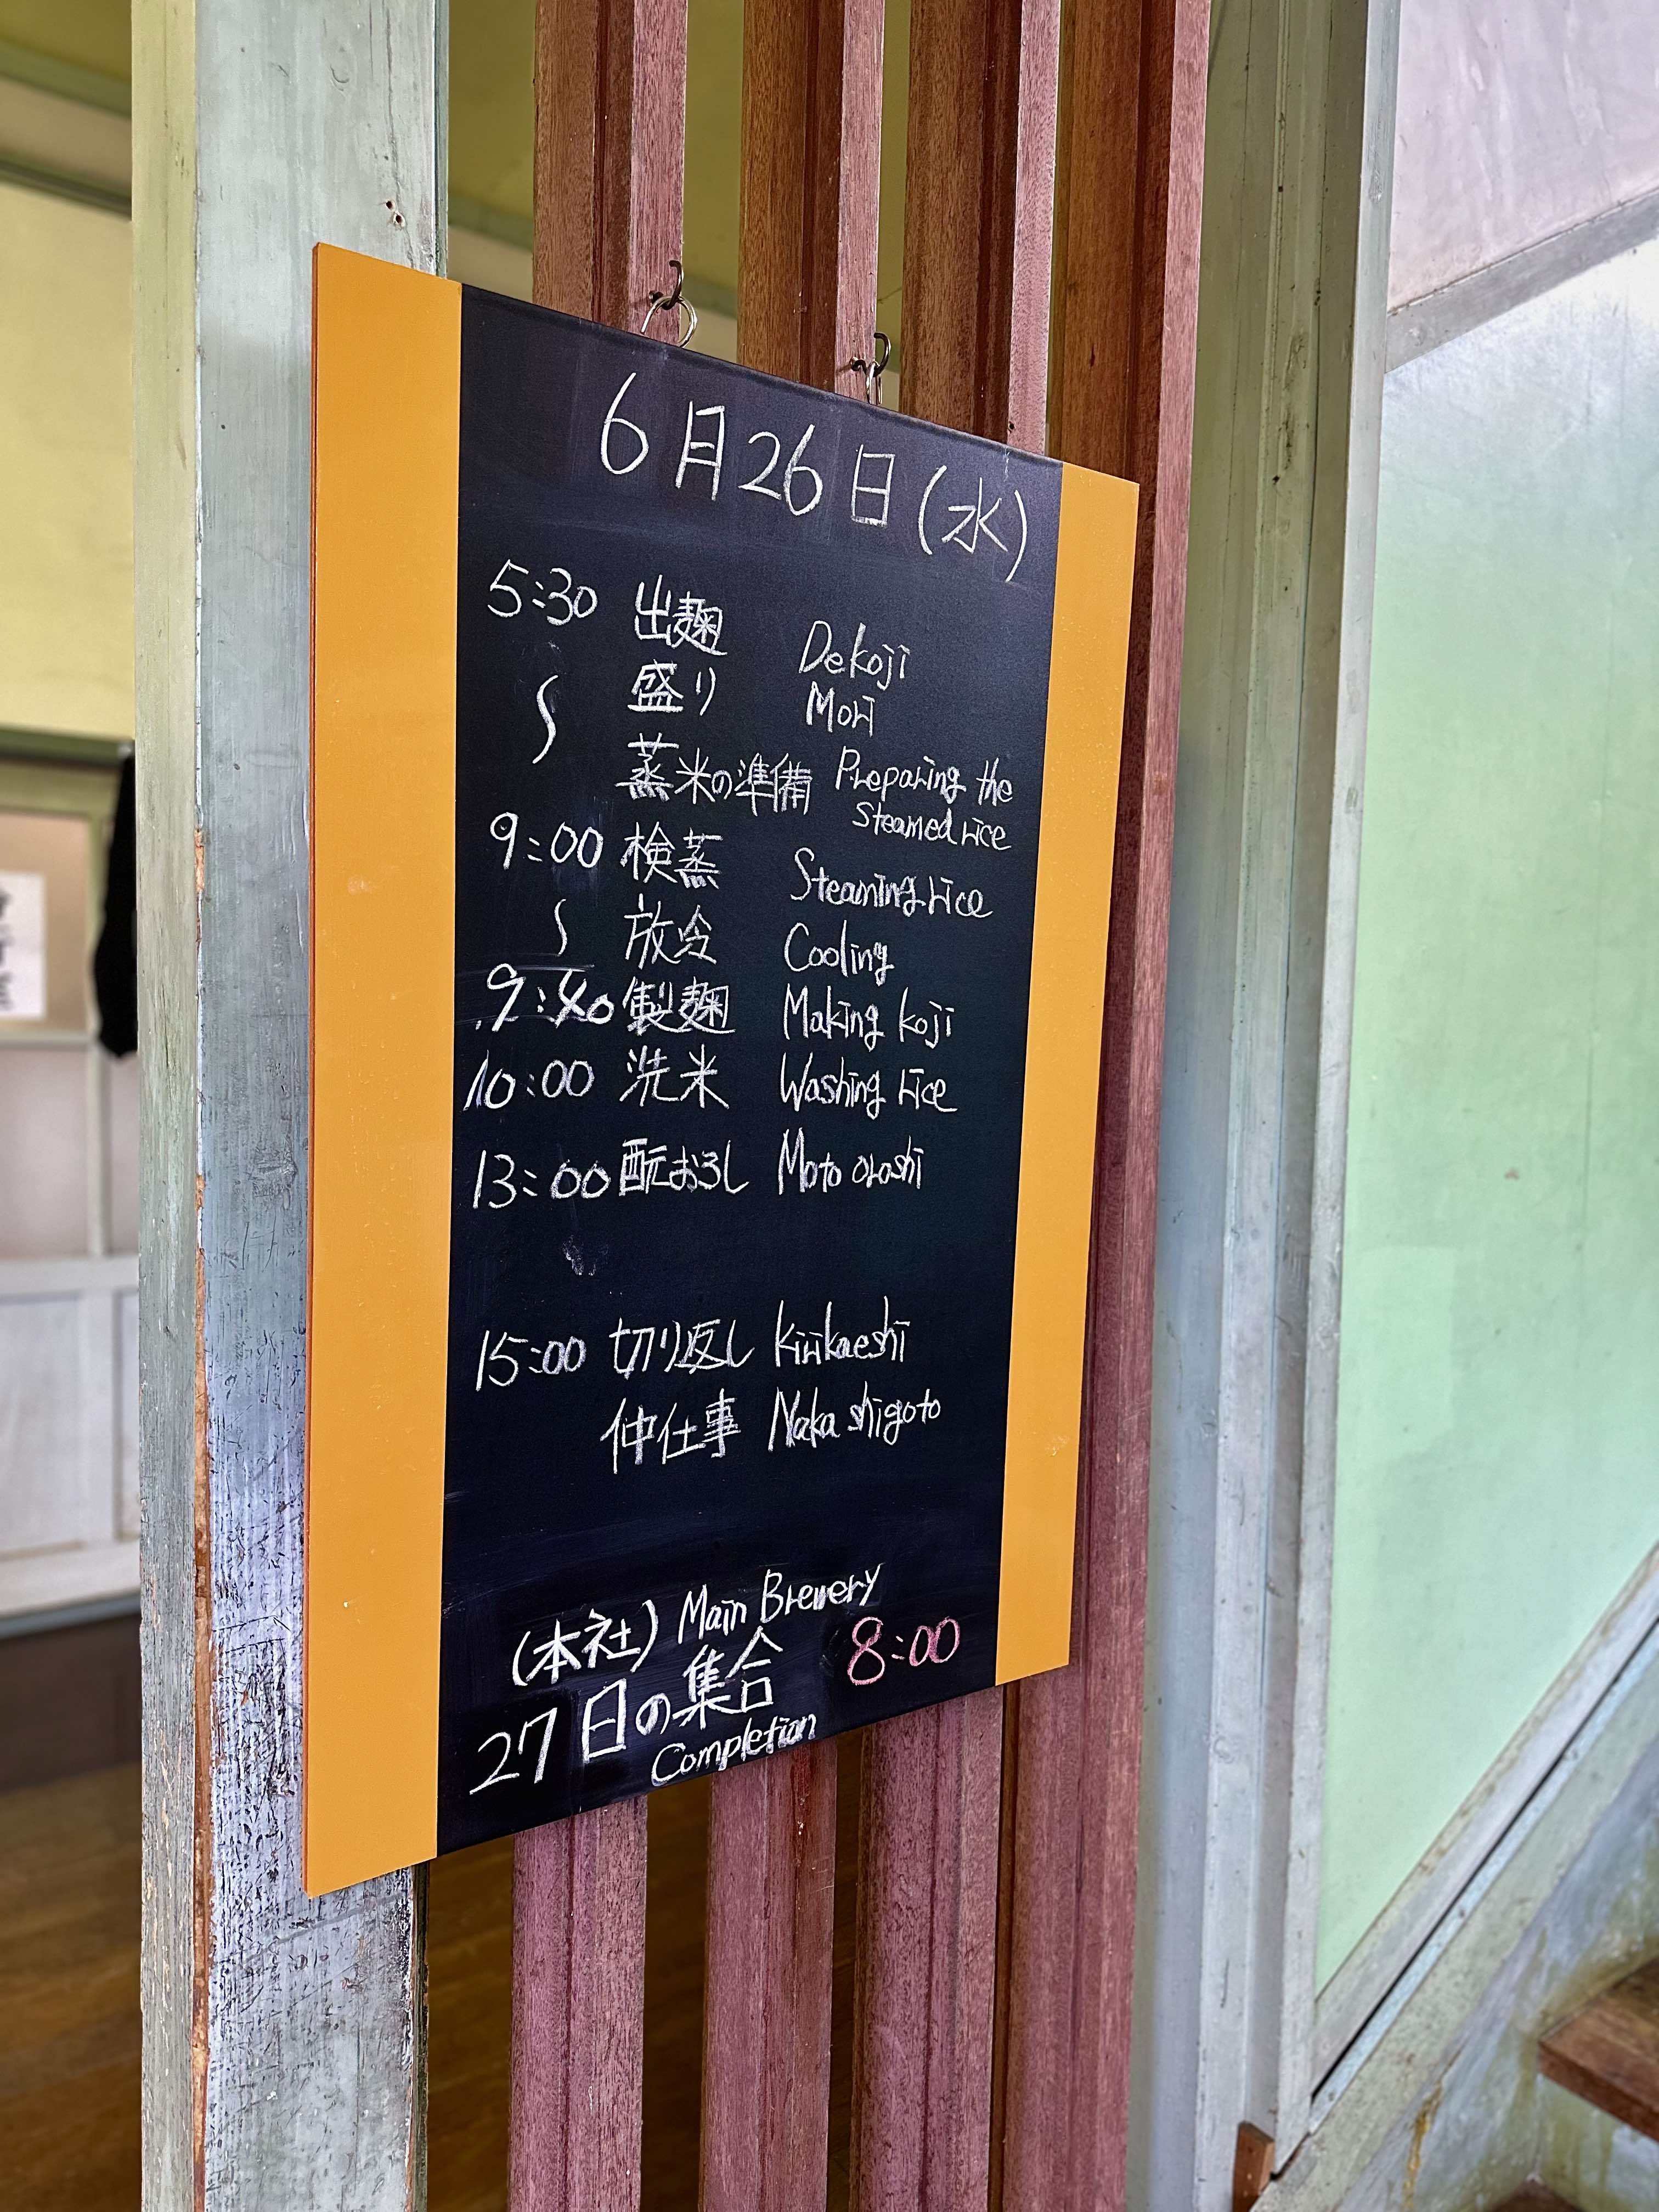 6月26日(水)
5:30 出麹 Dekoji
〜 盛り Mori
蒸米の準備 Preparing the
Steamed rice
9:00 検蒸 Steaming rice
〜 放冷 Cooling
9:40 製麹 Making koji
10:00 洗米 Washing rice
13:00 酛おろし Moto oroshi
15:00 切り返し Kirikaeshi
仲仕事 Naka shigoto
(本社) Main Brewery
27日の集合 8:00
Completion